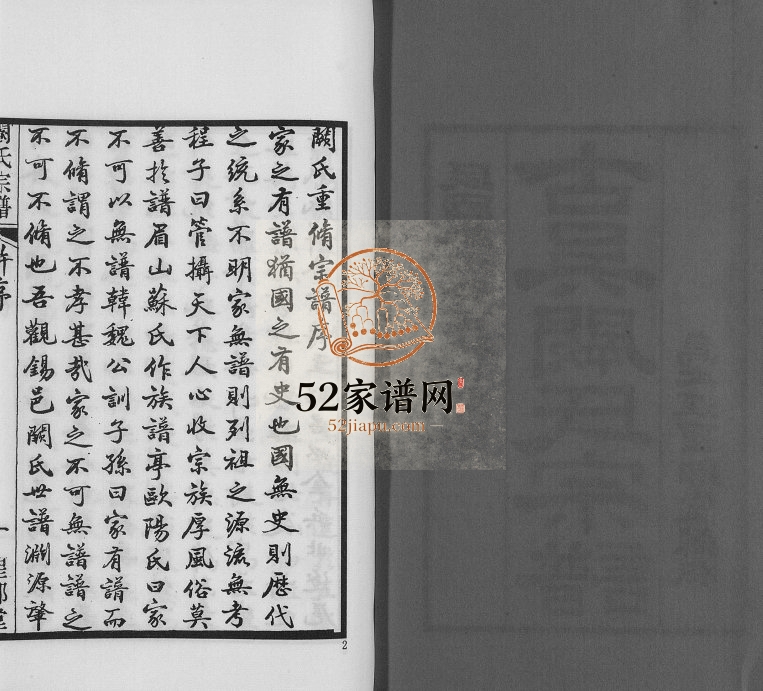 闞氏重脩宗譜序
家之有譜猶國之有史也國無史則歷代
之統系不明家無譜則列祖之源流無考
程子曰管攝天下人心收宗族厚風俗莫
善於譜眉山蘇氏作族譜亭歐陽氏曰家
不可以無譜韓魏公訓子孫曰家有譜而
不脩謂之不孝甚哉家之不可無譜譜之
不可不脩也吾觀錫邑闞氏世譜淵源肇
氏宗譜
序
一
2
52家谱网
52jiapu.com